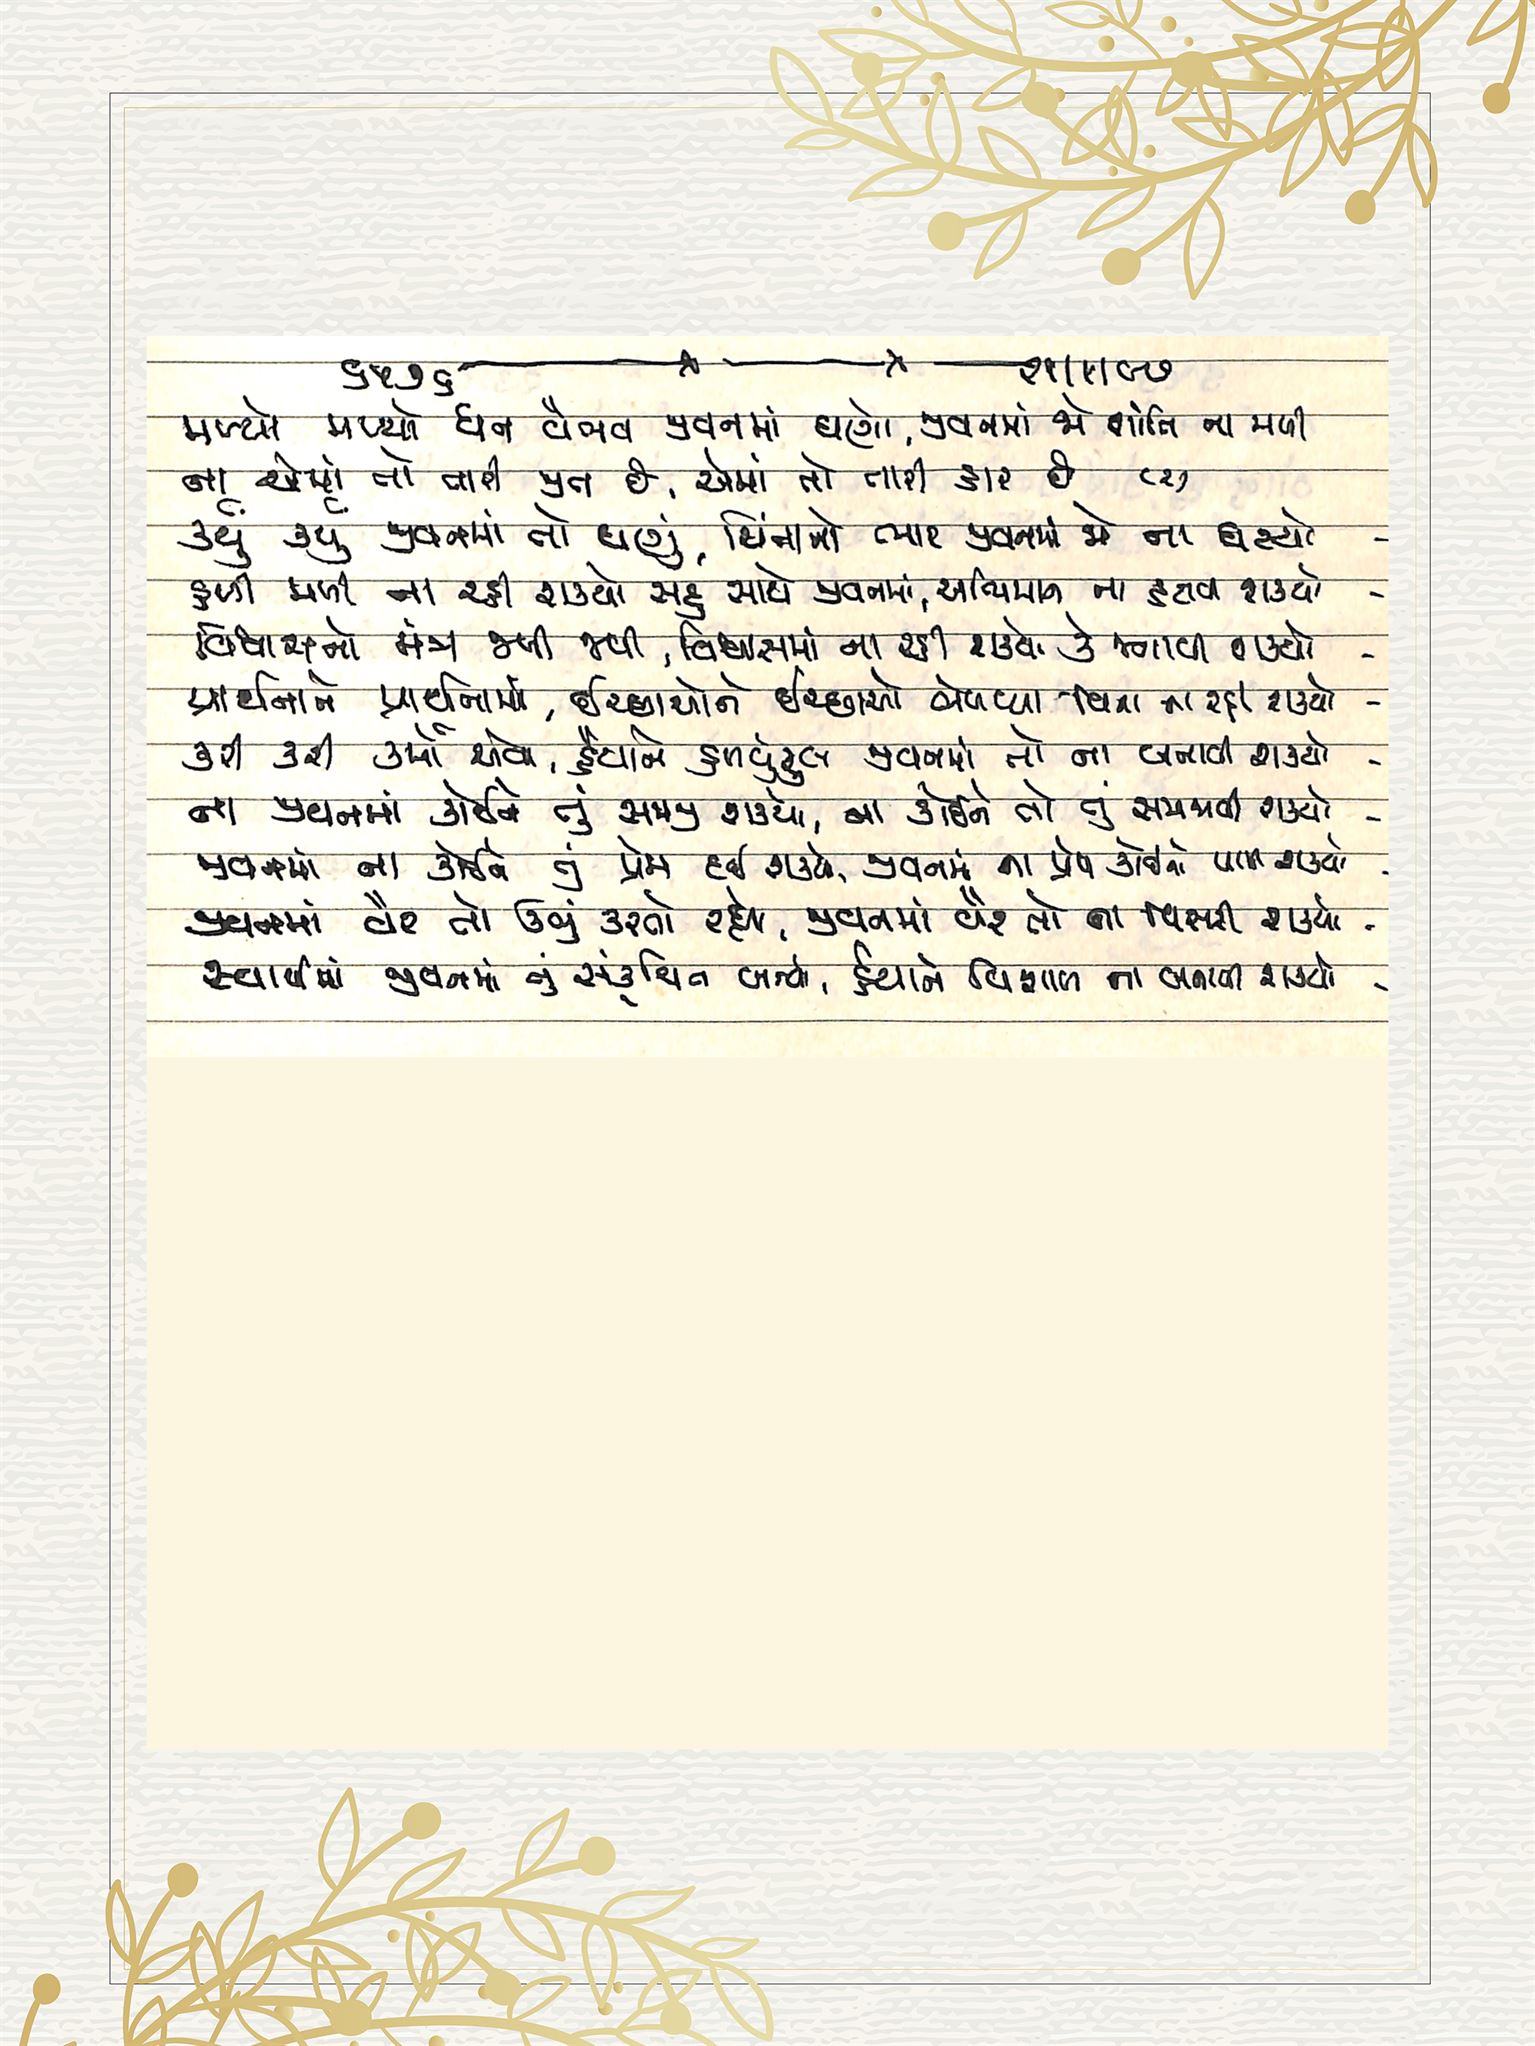 ૬૫૭૬ ૨૧/૧/૯૭
મળ્યો મળ્યો ધન વૈભવ જીવનમાં ઘણો, જીવનમાં જો શાંતિ ના મળી
ના એમાં તો તારી જીત છે, એમાં તો તારી હાર છે (૨)
કર્યું કર્યું જીવનમાં તો ઘણું, ચિંતાનો ભાર જીવનમાં જો ના ઘટયો -
હળી મળી ના રહી શક્યો સહુ સાથે જીવનમાં, અભિમાન ના હટાવી શક્યો -
વિશ્વાસનો મંત્ર જપી જપી, વિશ્વાસમાં ના રહી શક્યો કે જગાવી શક્યો -
પ્રાર્થનાને પ્રાર્થનામાં, ઈચ્છાઓને ઈચ્છાઓ ભેળવ્યા વિના ના રહી શક્યો -
કરી કરી કર્મો એવા, હૈયાને હળવુંફુલ જીવનમાં તો ના બનાવી શક્યો -
ના જીવનમાં કોઈને તું સમજી શક્યો, ના કોઈને તો તું સમજાવી શક્યો -
જીવનમાં ના કોઈને તું પ્રેમ દઈ શક્યો, જીવનમાં ના પ્રેમ કોઈનો પામી શક્યો -
જીવનમાં વૈર તો ઉભું કરતો રહ્યો, જીવનમાં વૈર તો ના વિસરી શક્યો -
સ્વાર્થમાં જીવનમાં તું સંકુચિત બન્યો, હૈયાને વિશાળ ના બનાવી શક્યો -